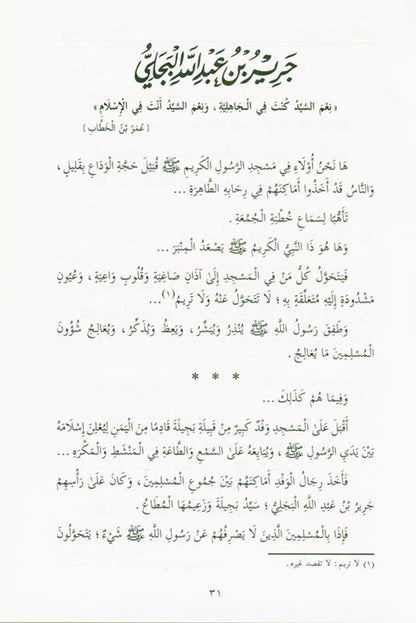 جَرِيْرُ بْنُ عَبْدِ اللَّهِ الْبَجَلِيُّ
«نِعْمَ السَّيِّدُ كُنْتَ فِي الْجَاهِلِيَّةِ ، وَنِعْمَ السَّيِّدُ أَنْتَ فِي الْإِسْلَامِ»
[عُمَرُ بْنُ الْخَطَّابِ]
هَا نَحْنُ أُوْلَاءِ فِي مَسْجِدِ الرَّسُولِ الْكَرِيمِ ﷺ قُبَيْلَ حَجَّةِ الْوَدَاعِ بِقَلِيلٍ ،
وَالنَّاسُ قَدْ أَخَذُوا أَمَاكِنَهُمْ فِي رِحَابِهِ الطَّاهِرَةِ ...
تَأَهُّبًا لِسَمَاعِ خُطْبَةِ الْجُمُعَةِ .
وَهَا هُوَ ذَا النَّبِيُّ الْكَرِيمُ ﷺ يَصْعَدُ الْمِنْبَرَ ...
فَيَتَحَوَّلُ كُلُّ مَنْ فِي الْمَسْجِدِ إِلَىٰ آذَانٍ صَاغِيَةٍ وَقُلُوبٍ وَاعِيَةٍ ، وَعُيُونٍ
مَشْدُودَةٍ إِلَيْهِ مُتَعَلِّقَةٍ بِهِ ؛ لَا تَتَحَوَّلُ عَنْهُ وَلَا تَرِيمُ(١)...
وَطَفِقَ رَسُولُ اللَّهِ ﷺ يُنْذِرُ وَيُبَشِّرُ ، وَيَعِظُ وَيُذَكِّرُ ، وَيُعَالِجُ شُؤُونَ
الْمُسْلِمِينَ مَا يُعَالِجُ .
* * *
وَفِيمَا هُمْ كَذَلِكَ ...
أَقْبَلَ عَلَىٰ الْمَسْجِدِ وَفْدٌ كَبِيرٌ مِنْ قَبِيلَةِ بَجِيلَةَ قَادِمًا مِنَ الْيَمَنِ لِيُعْلِنَ إِسْلَامَهُ
بَيْنَ يَدَيِ الرَّسُولِ ﷺ ، وَيُبَايِعَهُ عَلَىٰ السَّمْعِ وَالطَّاعَةِ فِي الْمَنْشَطِ وَالْمَكْرَهِ ...
فَأَخَذَ رِجَالُ الْوَفْدِ أَمَاكِنَهُمْ بَيْنَ جُمُوعِ الْمُسْلِمِينَ ، وَكَانَ عَلَىٰ رَأْسِهِمْ
جَرِيرُ بْنُ عَبْدِ اللَّهِ الْبَجَلِيُّ ؛ سَيِّدُ بَجِيلَةَ وَزَعِيمُهَا الْمُطَاعُ .
فَإِذَا بِالْمُسْلِمِينَ الَّذِينَ لَا يَصْرِفُهُمْ عَنْ رَسُولِ اللَّهِ ﷺ شَيْءٌ ؛ يَتَحَوَّلُونَ
(١) لا تريم: لا تقصد غيره.
٣١